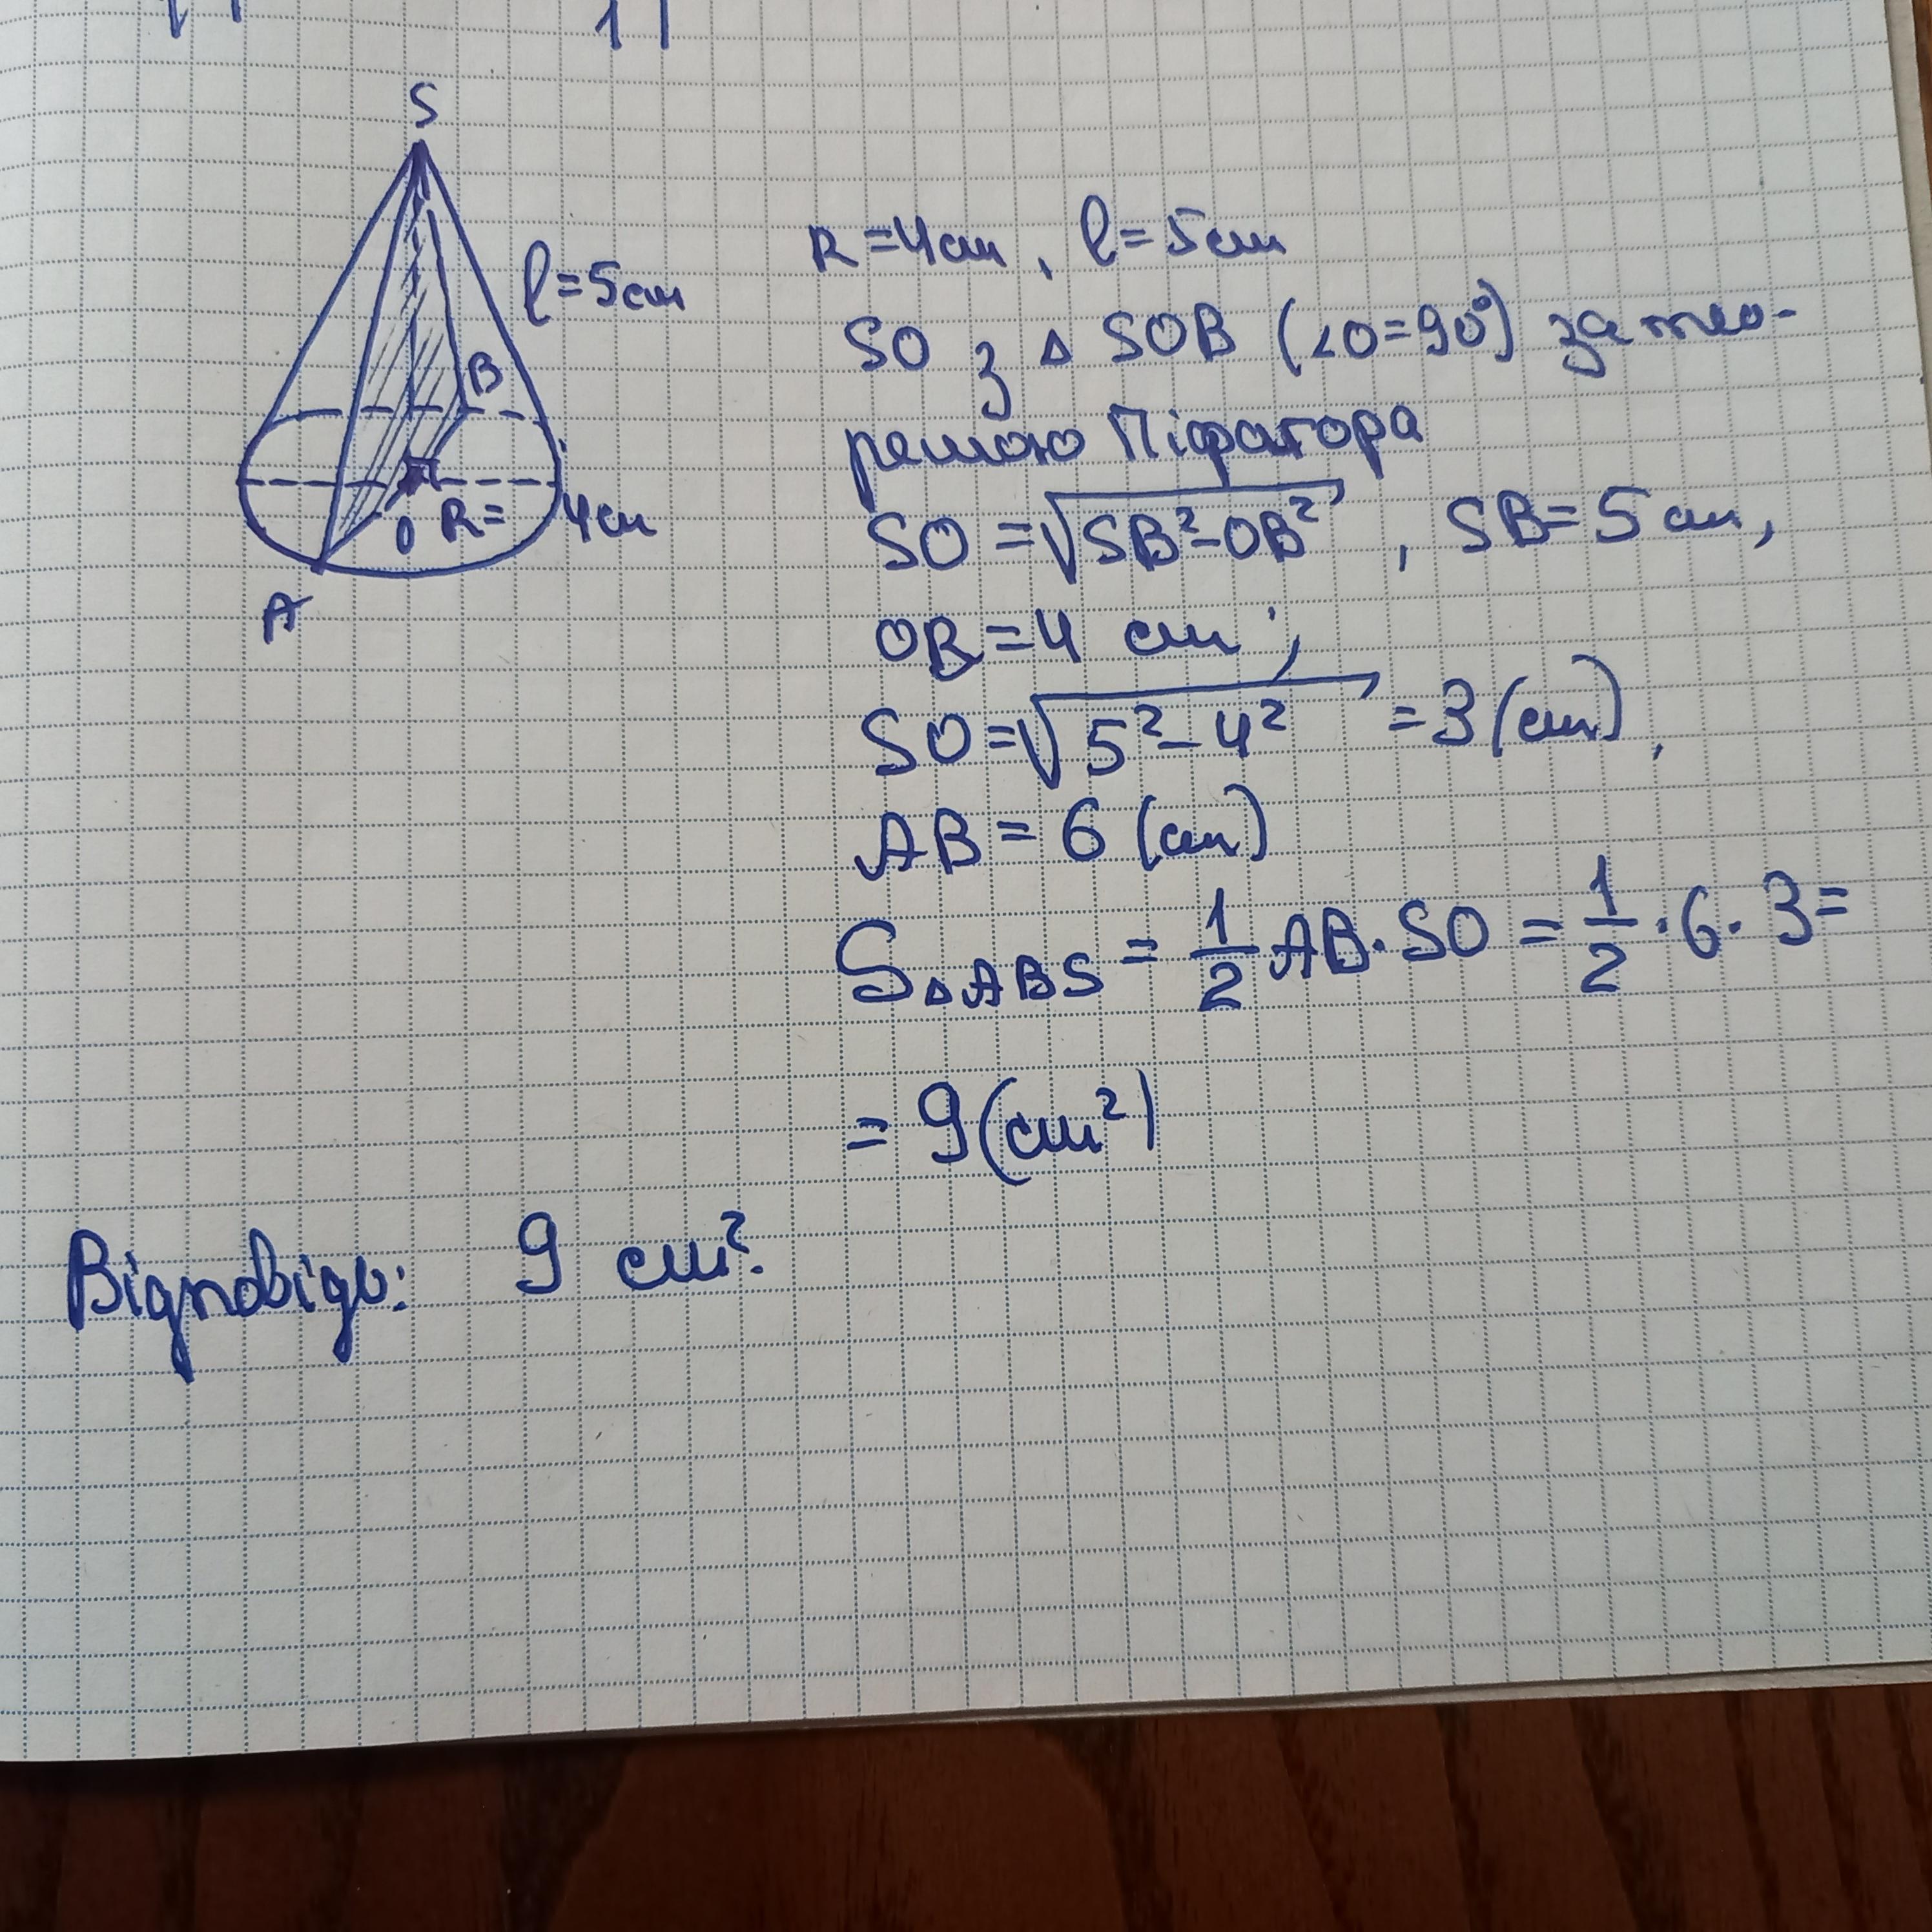 S
l=5см
B
O R= 4см
A
R=4см, l=5см
SO з △ SOB (∠O=90°) за тео-
ремою Піфагора
SO=√SB²-OB², SB=5 см,
OB=4 см;
SO=√5²-4² =3(см),
AB=6(см)
S△ABS = 1/2 AB·SO = 1/2·6·3=
= 9(см²)
Відповідь: 9 см².